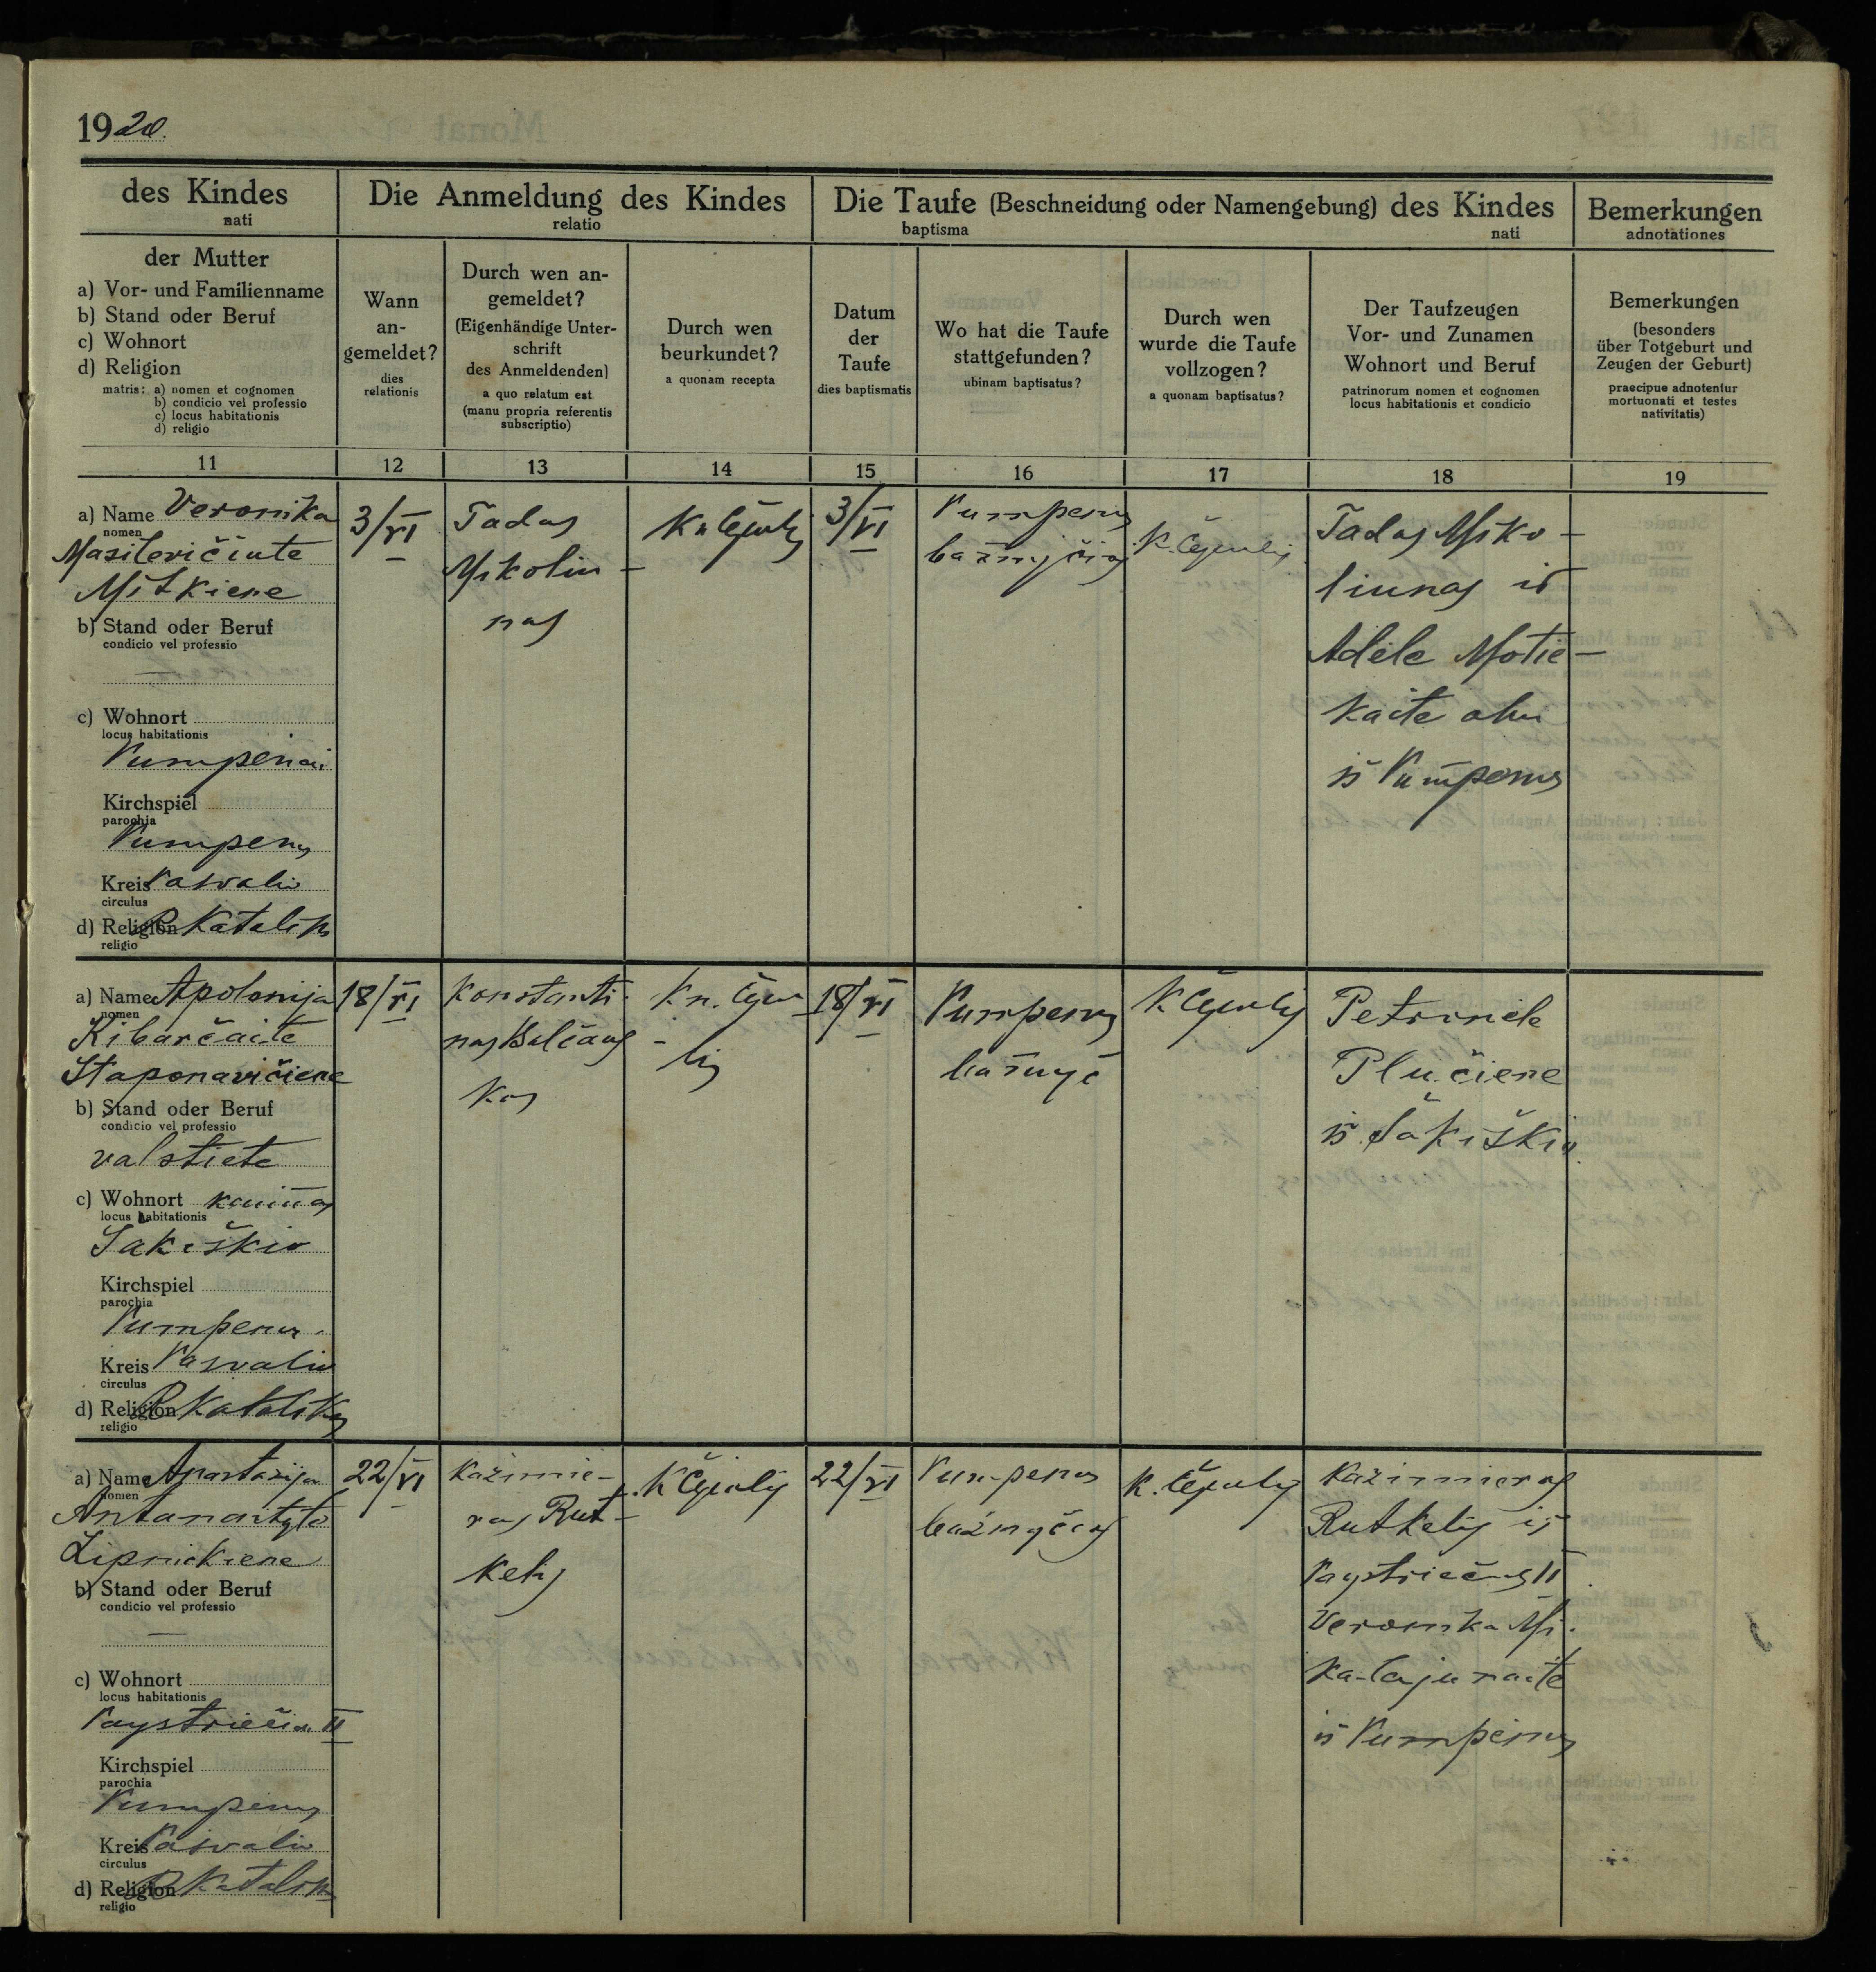 1920.
des Kindes
nati
Die Anmeldung des Kindes
relatio
Die Taufe (Beschneidung oder Namengebung) des Kindes
baptisma nati
Bemerkungen
adnotationes
der Mutter
a) Vor- und Familienname
b) Stand oder Beruf
c) Wohnort
d) Religion
matris: a) nomen et cognomen
b) condicio vel professio
c) locus habitationis
d) religio
Wann
an-
gemeldet?
dies
relationis
Durch wen an-
gemeldet?
(Eigenhändige Unter-
schrift
des Anmeldenden)
a quo relatum est
(manu propria referentis
subscriptio)
Durch wen
beurkundet?
a quonam recepta
Datum
der
Taufe
dies baptismatis
Wo hat die Taufe
stattgefunden?
ubinam baptisatus?
Durch wen
wurde die Taufe
vollzogen?
a quonam baptisatus?
Der Taufzeugen
Vor- und Zunamen
Wohnort und Beruf
patrinorum nomen et cognomen
locus habitationis et condicio
Bemerkungen
(besonders
über Totgeburt und
Zeugen der Geburt)
praecipue adnotentur
mortuonati et testes
nativitatis)
11 12 13 14 15 16 17 18 19
a) Name Veronika
nomen
Masilevičiute
Mitkiene
b) Stand oder Beruf
condicio vel professio
—
c) Wohnort
locus habitationis
Pumpenai
Kirchspiel
parochia
Pumpenų
Kreis Pasvalio
circulus
d) Religion R Katalikų
religio
3/VI
Tadas
Mikoliu-
nas
3/VI
Pumpenų
bažnyčioj
Tadas Miko-
liunas ir
Adėlė Motie-
kaite abu
iš Pumpenų
a) Name Apolonija
nomen
Kibarčaite
Staponavičiene
b) Stand oder Beruf
condicio vel professio
valstiete
c) Wohnort kaimas
locus habitationis
Šakiškio
Kirchspiel
parochia
Pumpenų
Kreis Pasvalio
circulus
d) Religion R Katalikų
religio
18/VI
Konstanti-
nas Balčaus
kas
18/VI
Pumpenų
bažnyč
Petronelė
Plučiene
iš Šakiškio
a) Name Anastazija
nomen
Antanaitytė
Lipnickiene
b) Stand oder Beruf
condicio vel professio
—
c) Wohnort
locus habitationis
Paystriečiai II
Kirchspiel
parochia
Pumpenų
Kreis Pasvalio
circulus
d) Religion R Katalikų
religio
22/VI
Kazimie-
ras Rut-
kelis
22/VI
Pumpenų
bažnyčioj
Kazimieras
Rutkelis iš
Paystriečių II
Veronika Mi-
iš Pumpėnų